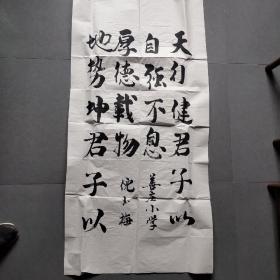 天行健君子以
自强不息
小学
厚德載物
小梅
地势坤君子以